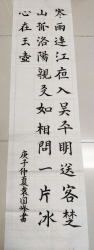 寒雨連江夜入吴平明送客楚
山孤洛陽親友如相問一片冰
心在玉壺
庚子仲夏袁国書